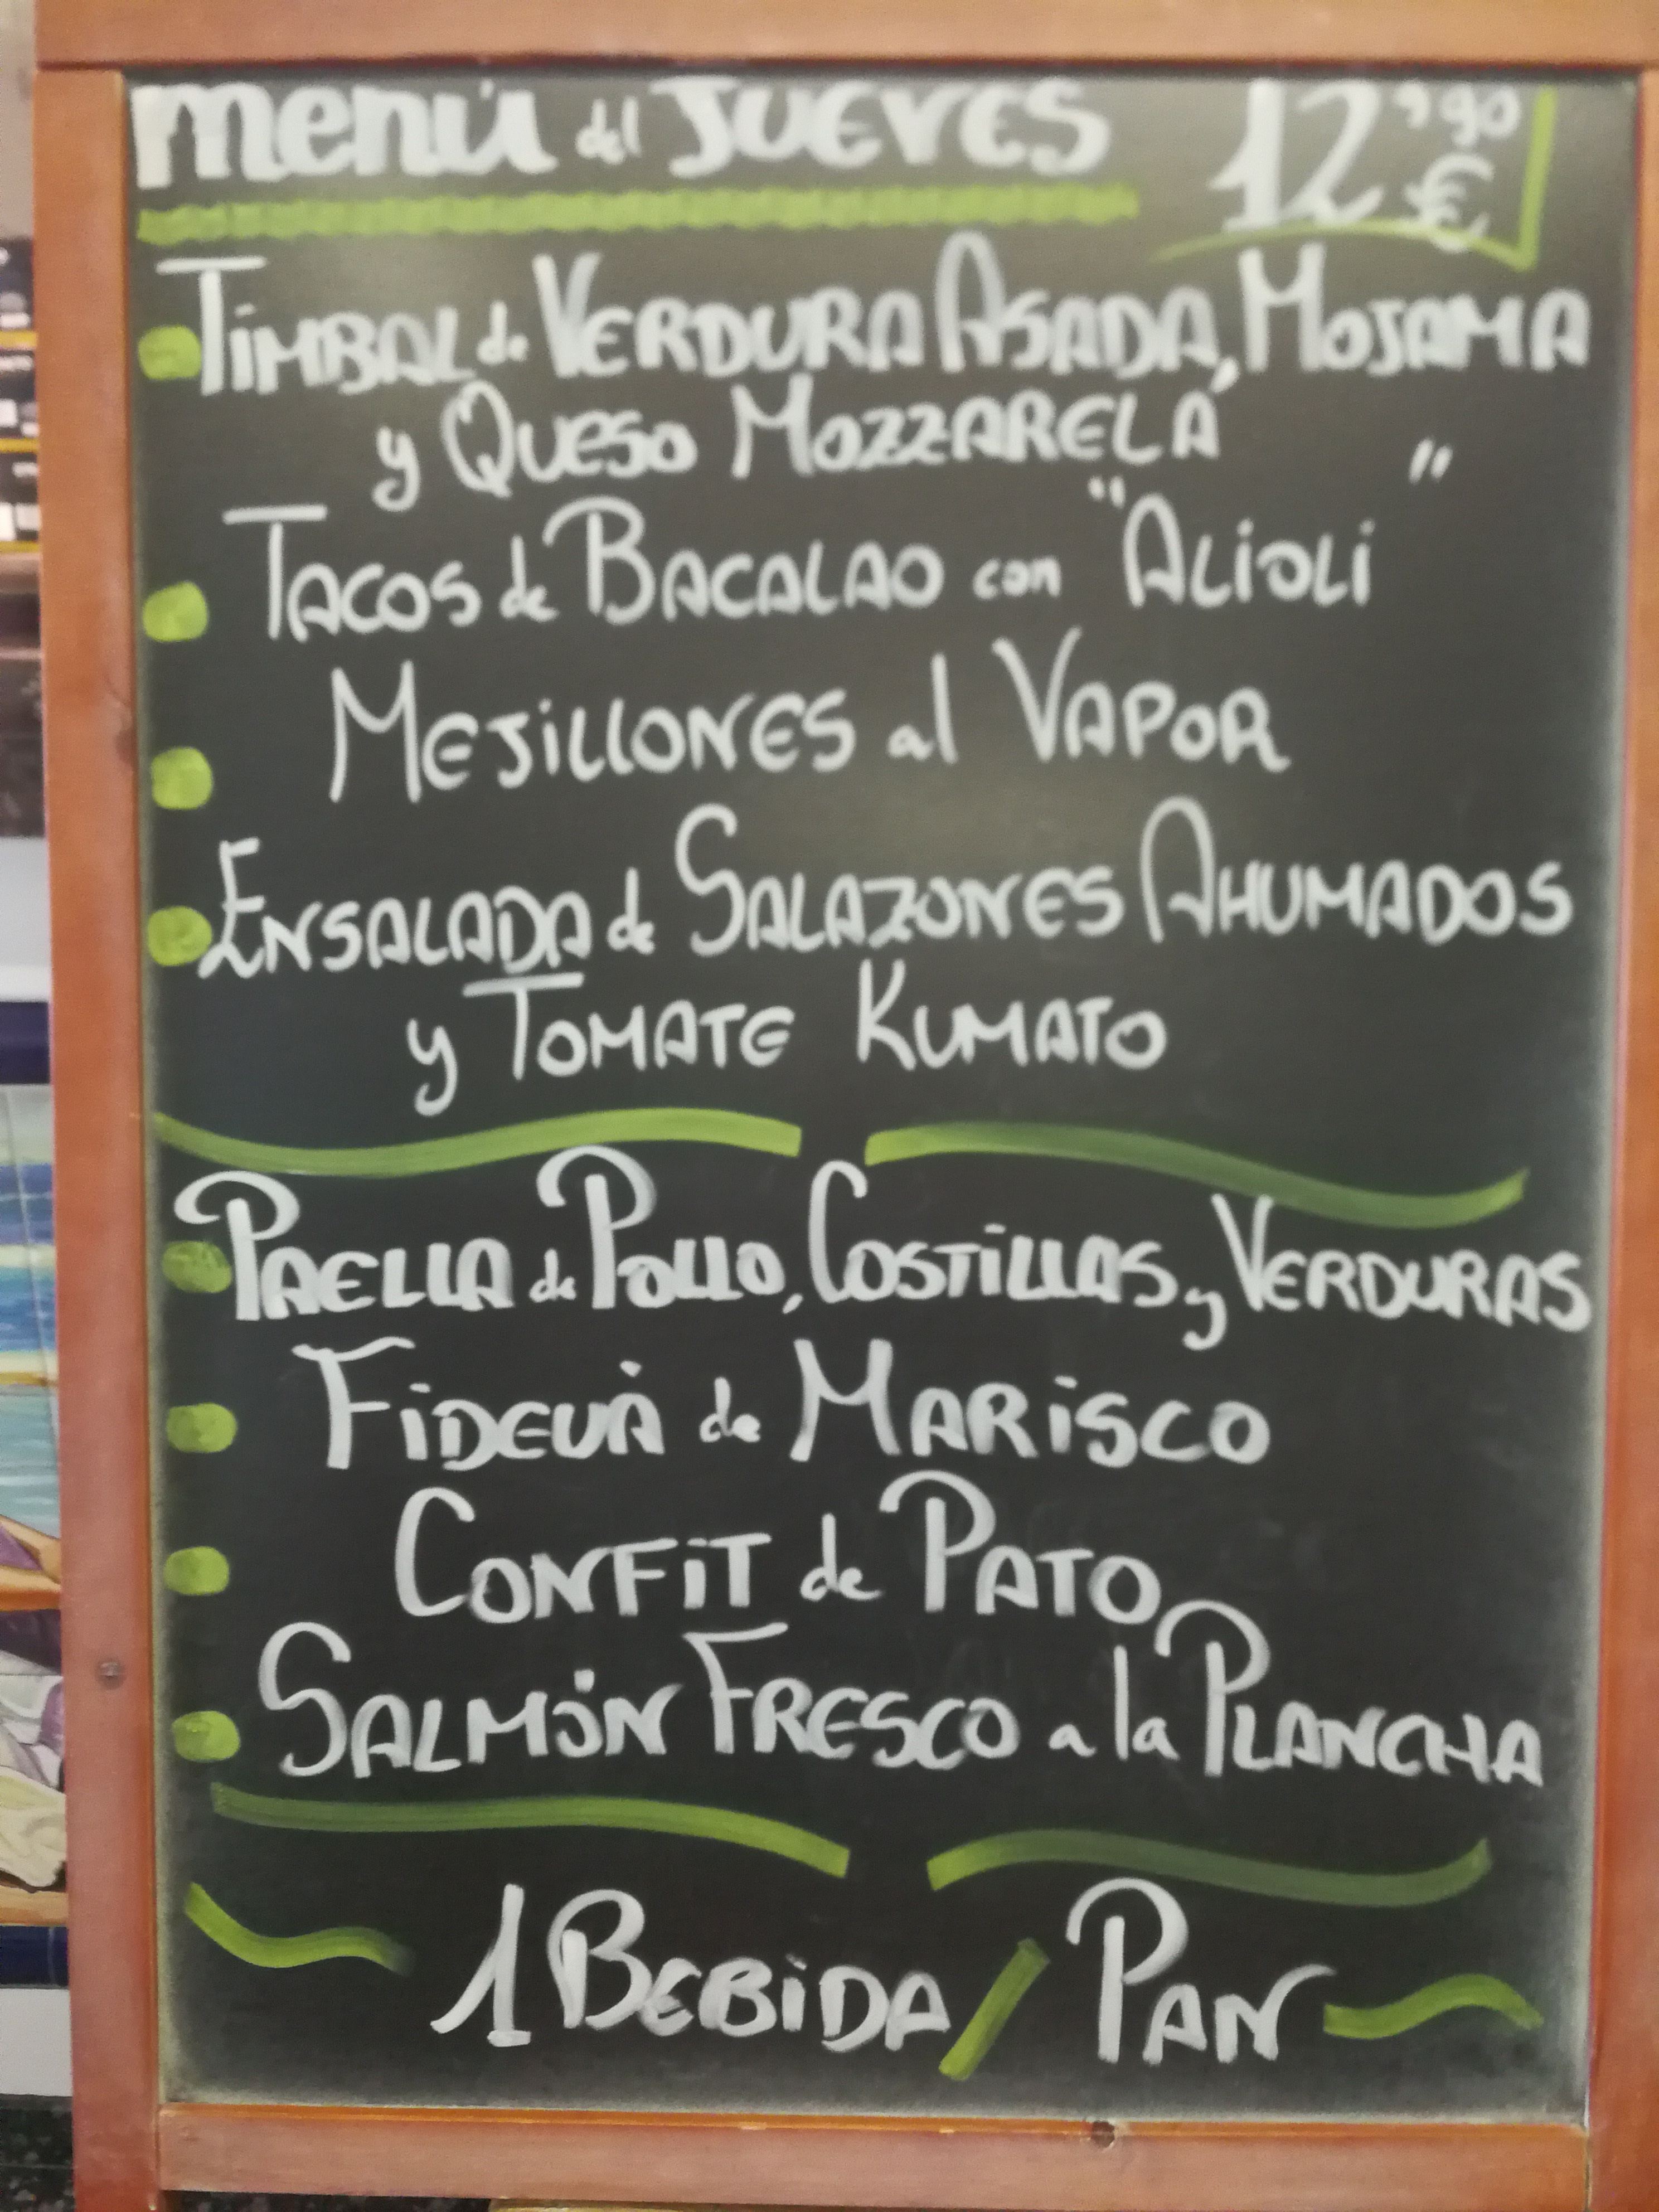 menú del JUEVES 12,90 €
TIMBAL de VERDURA ASADA, MOJAMA
y QUESO MOZZARELA
TACOS de BACALAO con "ALIOLI"
MEJILLONES al VAPOR
ENSALADA de SALAZONES AHUMADOS
y TOMATE KUMATO
PAELLA de POLLO, COSTILLAS y VERDURAS
FIDEUÀ de MARISCO
CONFIT de PATO
SALMÓN FRESCO a la PLANCHA
1 BEBIDA / PAN